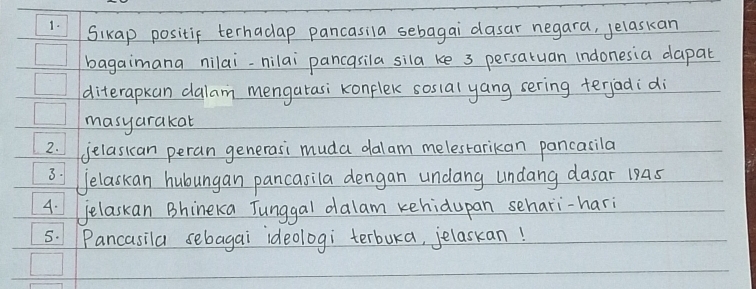 1. Sikap positif terhadap pancasila sebagai dasar negara, jelaskan
bagaimana nilai - nilai pancasila sila ke 3 persatuan indonesia dapat
diterapkan dalam mengatasi konflek sosial yang sering terjadi di
masyarakat
2. jelaskan peran generasi muda dalam melestarikan pancasila
3. jelaskan hubungan pancasila dengan undang undang dasar 1945
4. jelaskan Bhineka Tunggal dalam kehidupan sehari-hari
5. Pancasila sebagai ideologi terbuka, jelaskan !